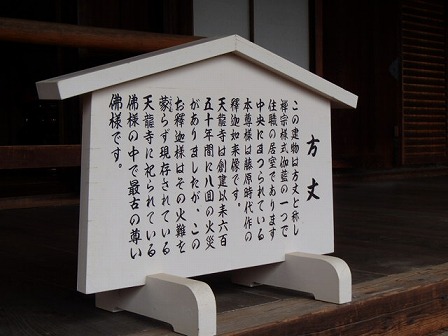 方丈
この建物は方丈と称し
禅宗様式伽藍の一つで
住職の居室であります
中央にまつられている
本尊様は藤原時代作の
釋迦如来像です。
天龍寺は創建以来六百
五十年間に八回の火災
がありましたが、この
お釋迦様はその火難を
蒙らず現存されている
天龍寺に祀られている
佛様の中で最古の尊い
佛様です。